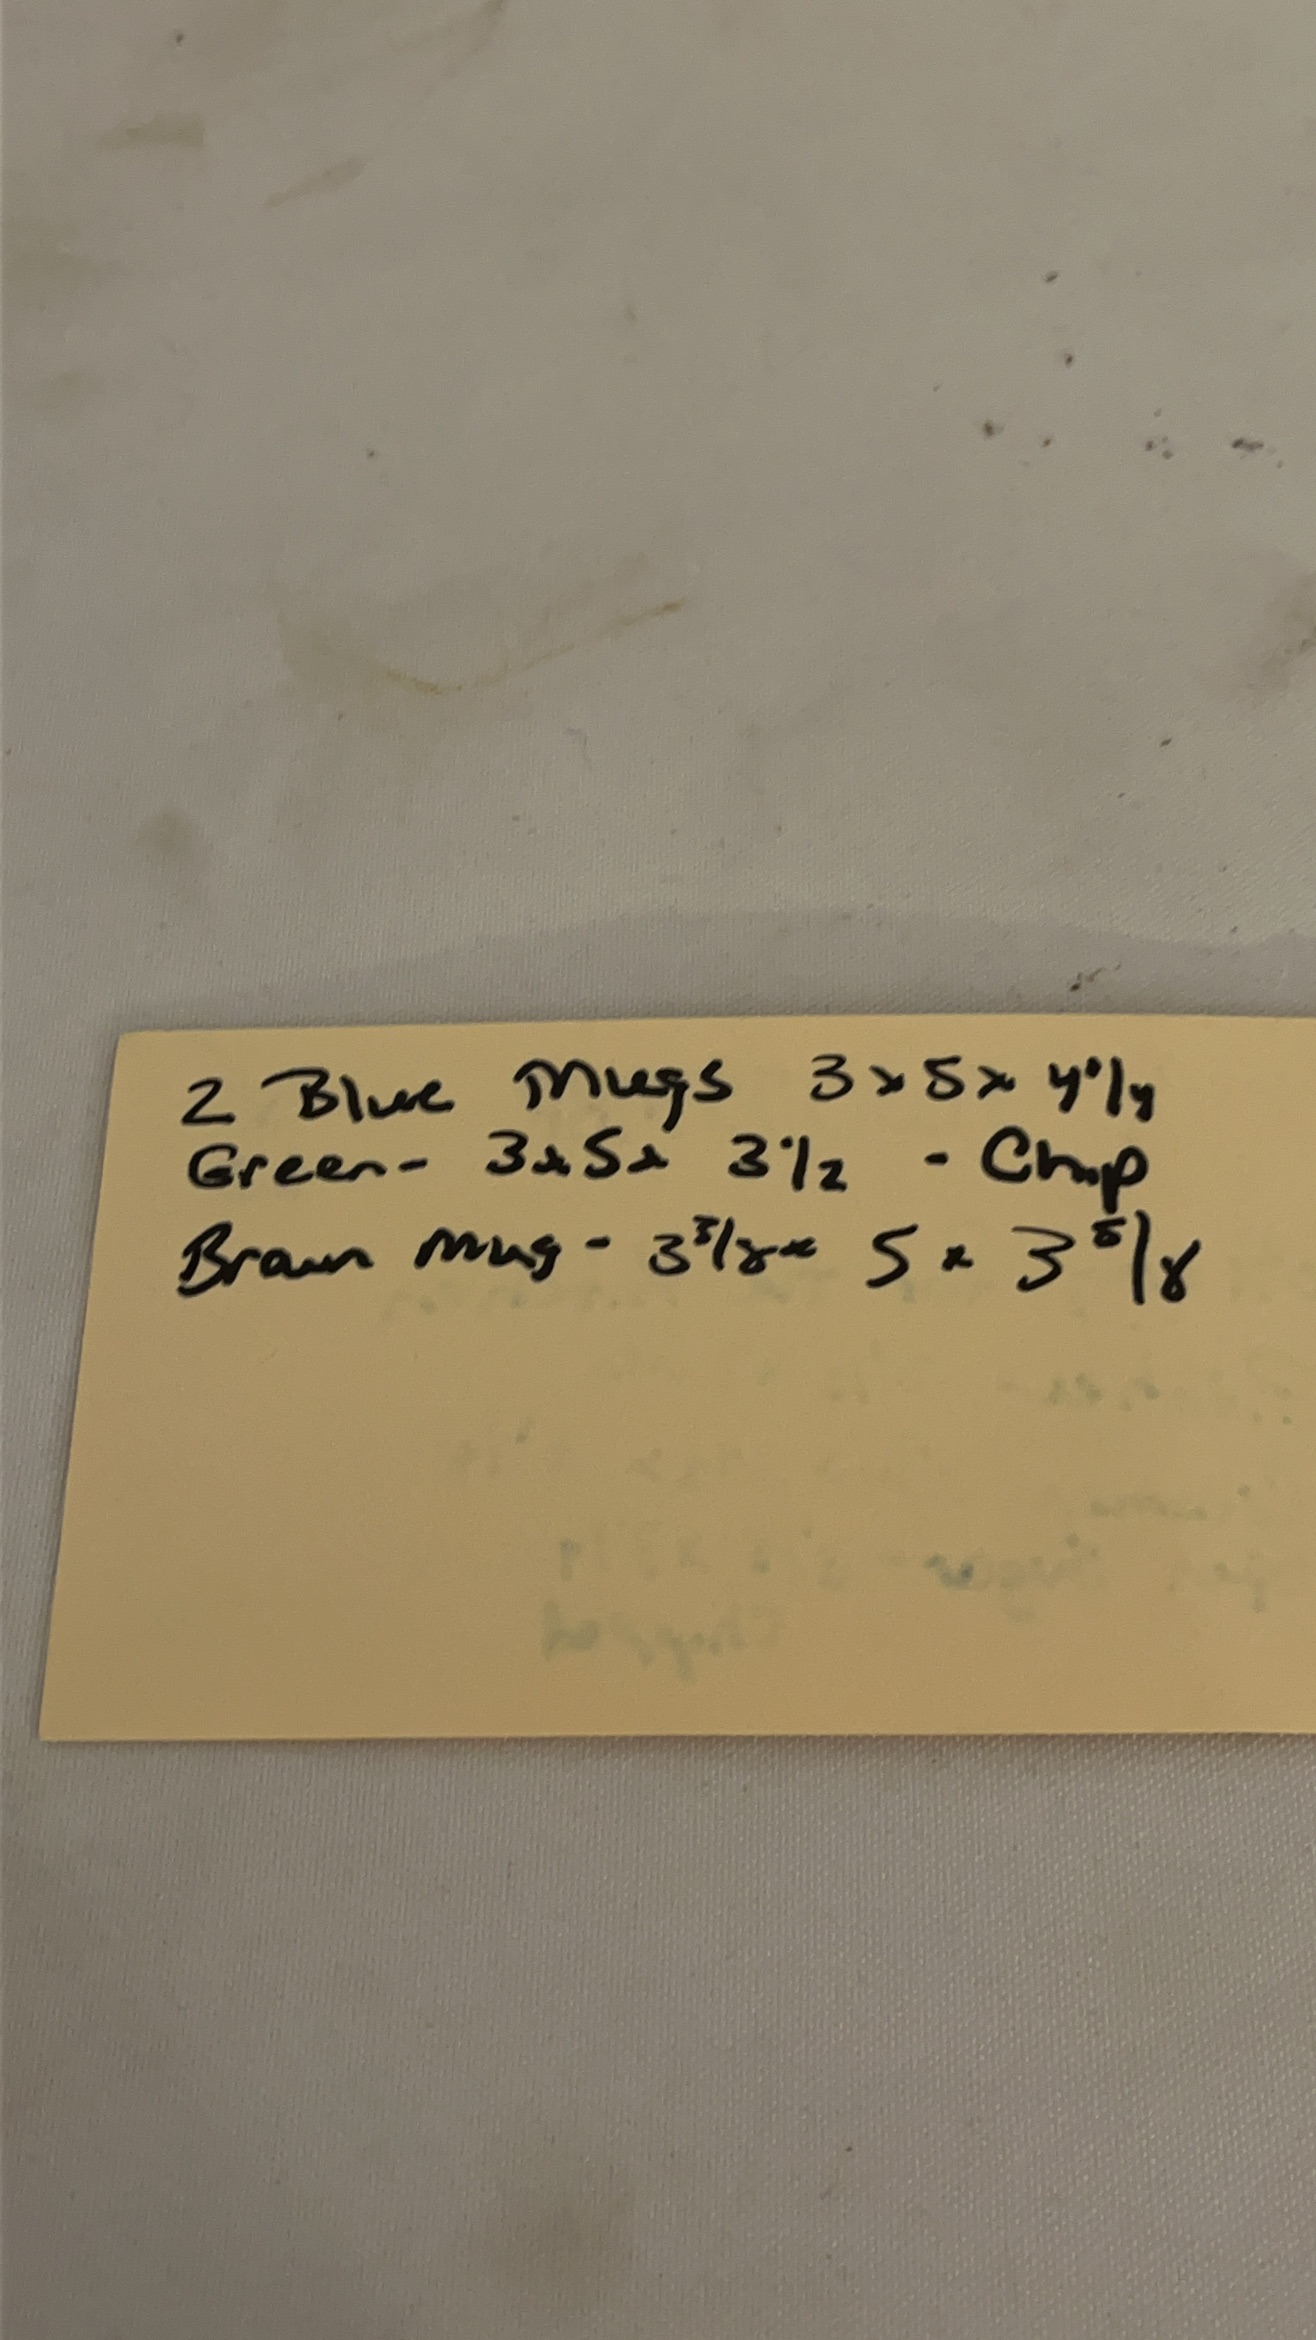 2 Blue Mugs 3 x 5 x 4 1/4
Green - 3 x 5 x 3 1/2 - Chip
Brown Mug - 3 3/8 x 5 x 3 5/8